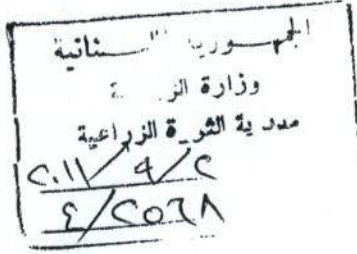 الجمهورية اللبنانية
وزارة الزراعة
مديرية الثروة الزراعية
٢٠١١/٩/٢
٤/٢٥٦٨